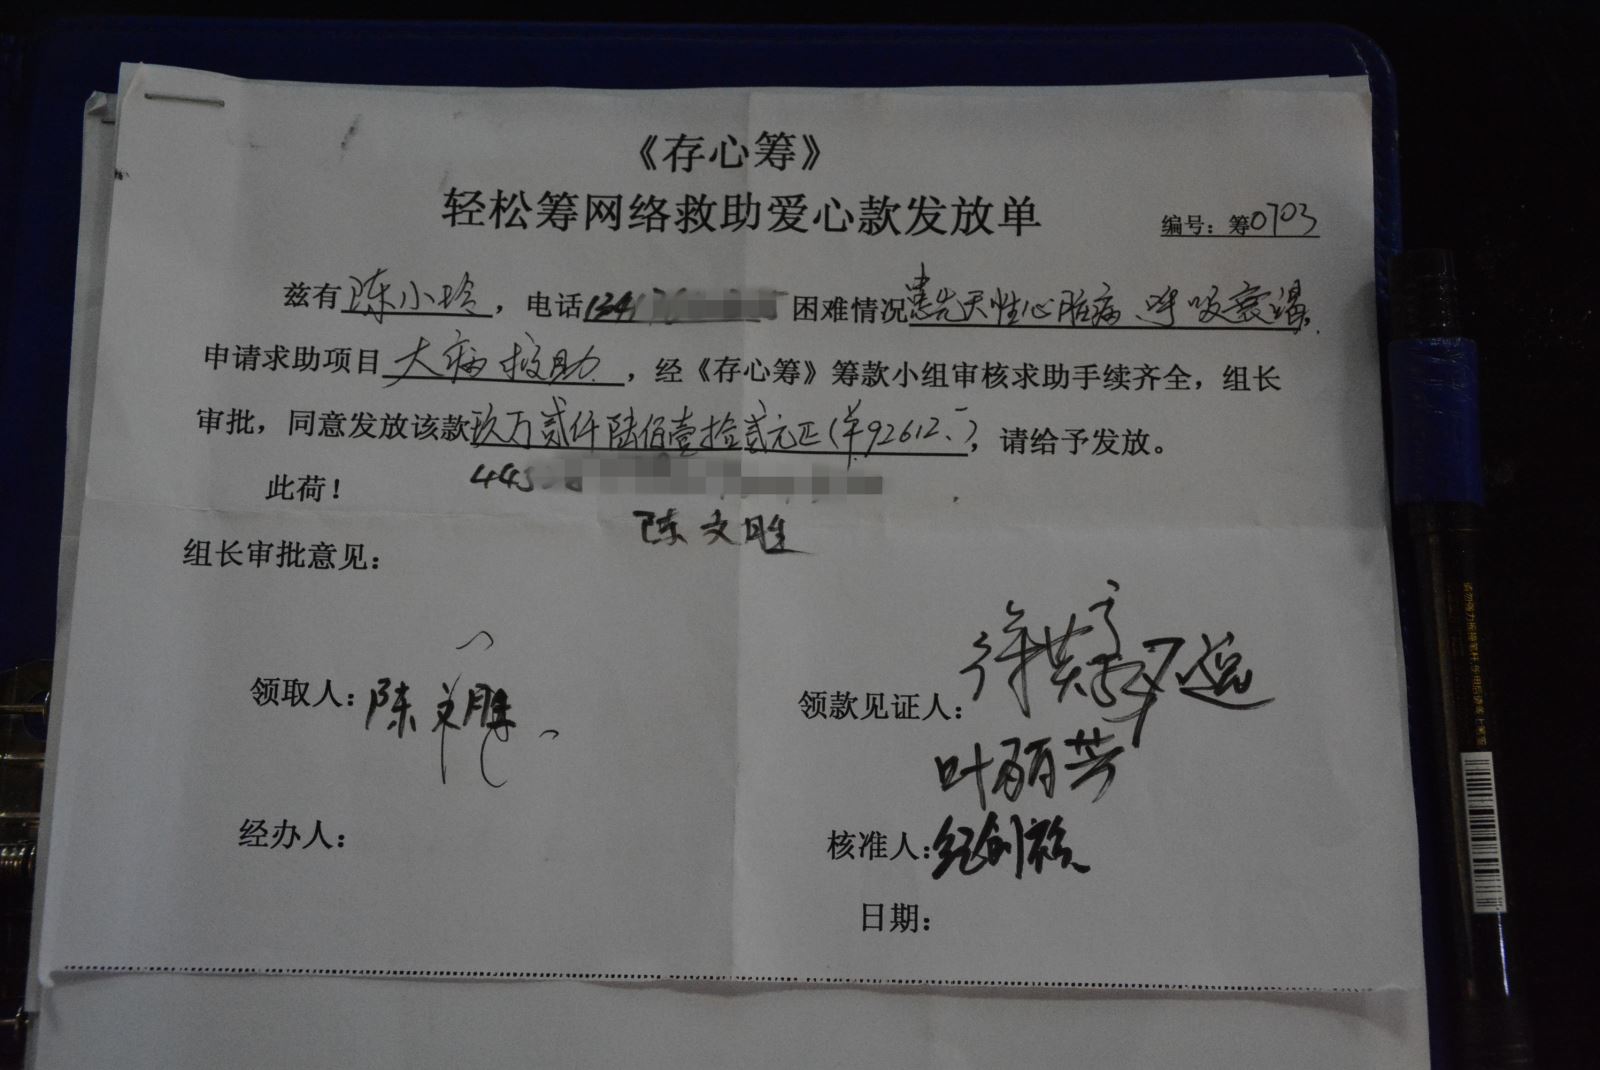 《存心筹》
轻松筹网络救助爱心款发放单
编号：筹0703
兹有陈小玲，电话134176 困难情况患先天性心脏病 呼吸衰竭，
申请求助项目大病救助，经《存心筹》筹款小组审核求助手续齐全，组长
审批，同意发放该款玖万贰仟陆佰壹拾贰元正(￥92612.-)，请给予发放。
此荷！
445
陈文胜
组长审批意见：
领取人：陈文胜
领款见证人：
叶丽芳
经办人：
核准人：
日期：